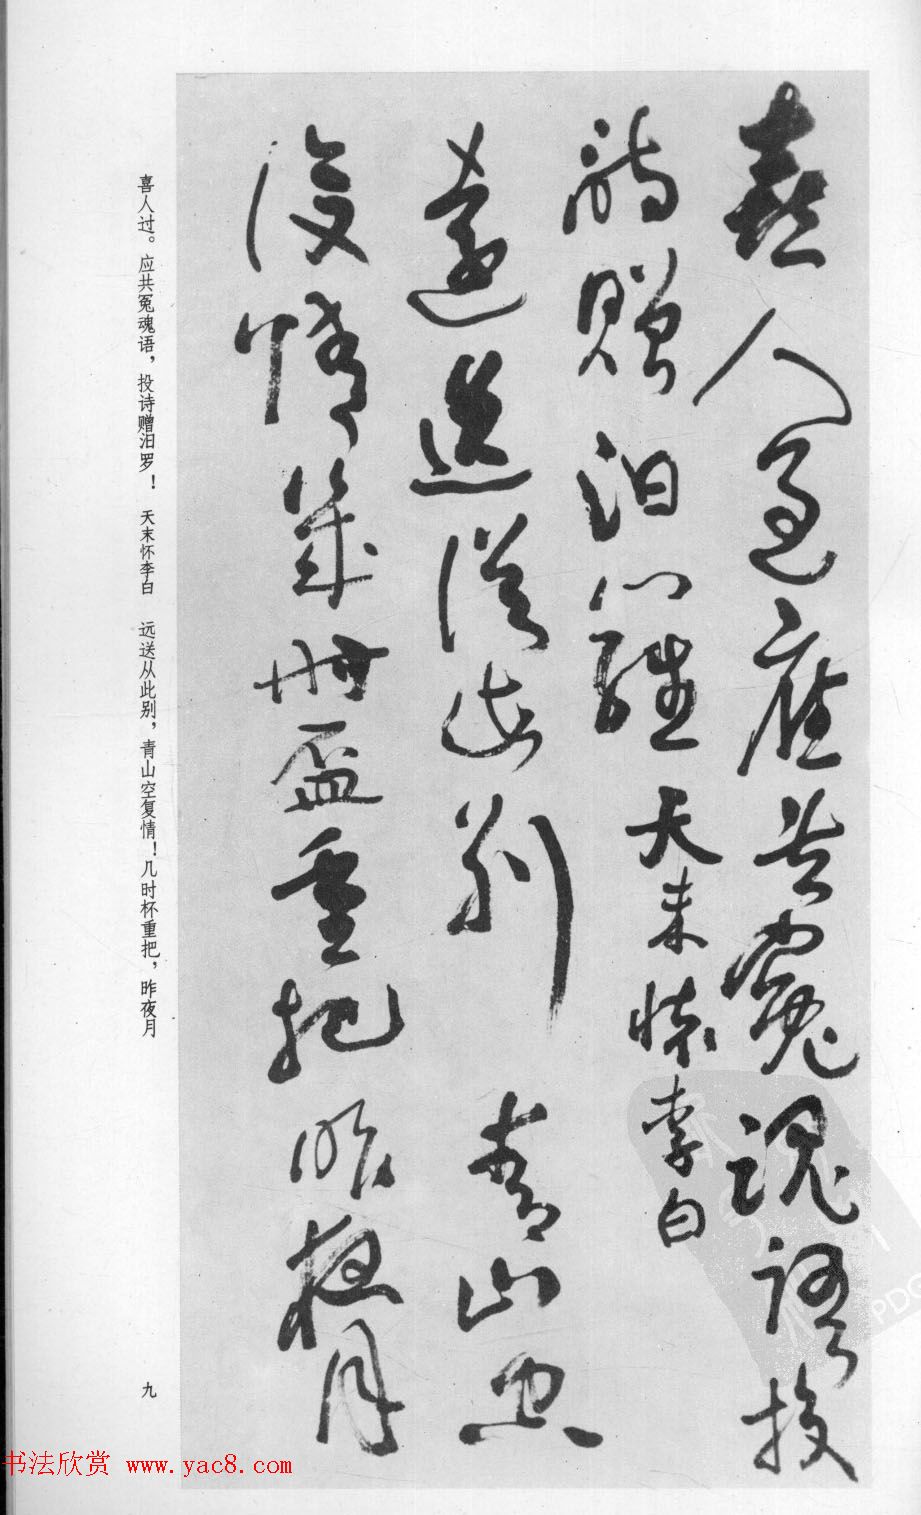 喜人過應共寃魂語投
詩贈汨羅天末懷李白
遠送從此別青山空
復情幾時盃重把昨夜月
喜人过。应共冤魂语，投诗赠汨罗！ 天末怀李白 远送从此别，青山空复情！几时杯重把，昨夜月
九
书法欣赏 www.yac8.com
PDG